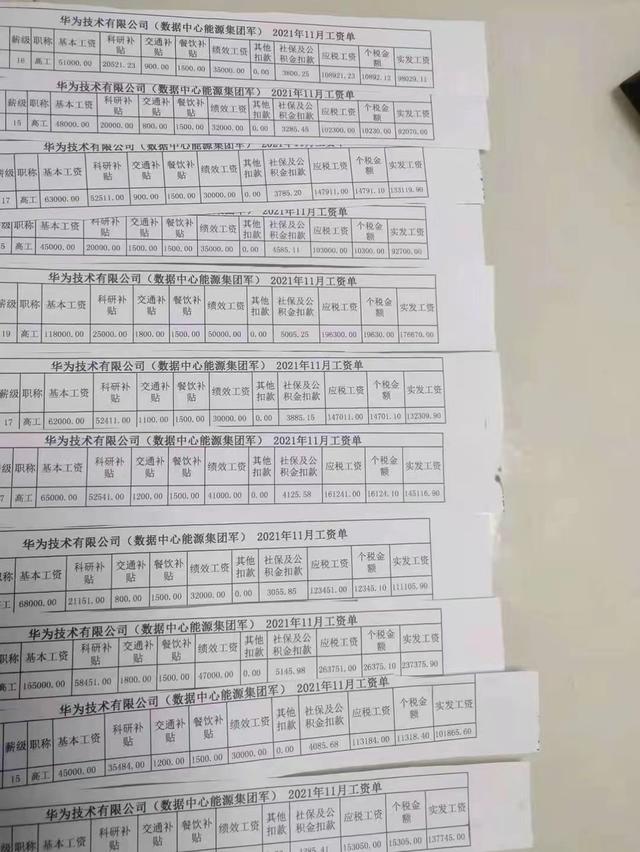 华为技术有限公司（数据中心能源集团军） 2021年11月工资单
薪级 职称 基本工资 科研补贴 交通补贴 餐饮补贴 绩效工资 其他扣款 社保及公积金扣款 应税工资 个税金额 实发工资
16 高工 51000.00 20521.23 900.00 1500.00 35000.00 0.00 3800.25 108921.23 10892.12 98029.11
华为技术有限公司（数据中心能源集团军） 2021年11月工资单
薪级 职称 基本工资 科研补贴 交通补贴 餐饮补贴 绩效工资 其他扣款 社保及公积金扣款 应税工资 个税金额 实发工资
15 高工 48000.00 20000.00 800.00 1500.00 32000.00 0.00 3285.45 102300.00 10230.00 92070.00
华为技术有限公司（数据中心能源集团军） 2021年11月工资单
薪级 职称 基本工资 科研补贴 交通补贴 餐饮补贴 绩效工资 其他扣款 社保及公积金扣款 应税工资 个税金额 实发工资
17 高工 63000.00 52511.00 900.00 1500.00 30000.00 0.00 3785.20 147911.00 14791.10 133119.90
2021年11月工资单
级 职称 基本工资 科研补贴 交通补贴 餐饮补贴 绩效工资 其他扣款 社保及公积金扣款 应税工资 个税金额 实发工资
5 高工 45000.00 20090.00 1500.00 1500.00 35000.00 0.00 4585.11 103000.00 10300.00 92700.00
华为技术有限公司（数据中心能源集团军） 2021年11月工资单
薪级 职称 基本工资 科研补贴 交通补贴 餐饮补贴 绩效工资 其他扣款 社保及公积金扣款 应税工资 个税金额 实发工资
19 高工 118000.00 25000.00 1800.00 1500.00 50000.00 0.00 5005.25 196300.00 19630.00 176670.00
华为技术有限公司（数据中心能源集团军） 2021年11月工资单
薪级 职称 基本工资 科研补贴 交通补贴 餐饮补贴 绩效工资 其他扣款 社保及公积金扣款 应税工资 个税金额 实发工资
17 高工 62000.00 52411.00 1100.00 1500.00 30000.00 0.00 3885.15 147011.00 14701.10 132309.90
华为技术有限公司（数据中心能源集团军） 2021年11月工资单
级 职称 基本工资 科研补贴 交通补贴 餐饮补贴 绩效工资 其他扣款 社保及公积金扣款 应税工资 个税金额 实发工资
7 高工 65000.00 52541.00 1200.00 1500.00 41000.00 0.00 4125.58 161241.00 16124.10 145116.90
华为技术有限公司（数据中心能源集团军） 2021年11月工资单
职称 基本工资 科研补贴 交通补贴 餐饮补贴 绩效工资 其他扣款 社保及公积金扣款 应税工资 个税金额 实发工资
高工 68000.00 21151.00 800.00 1500.00 32000.00 0.00 3055.85 123451.00 12345.10 111105.90
华为技术有限公司（数据中心能源集团军） 2021年11月工资单
职称 基本工资 科研补贴 交通补贴 餐饮补贴 绩效工资 其他扣款 社保及公积金扣款 应税工资 个税金额 实发工资
高工 155000.00 58451.00 1800.00 1500.00 47000.00 0.00 5145.98 263751.00 26375.10 237375.90
华为技术有限公司（数据中心能源集团军） 2021年11月工资单
薪级 职称 基本工资 科研补贴 交通补贴 餐饮补贴 绩效工资 其他扣款 社保及公积金扣款 应税工资 个税金额 实发工资
15 高工 45000.00 35484.00 1200.00 1500.00 30000.00 0.00 4085.68 113184.00 11318.40 101865.60
华为技术有限公司（数据中心能源集团军） 2021年11月工资单
职称 基本工资 科研补 交通补 餐饮补 绩效工资 其他扣款 社保及公积金扣款 应税工资 个税金额 实发工资
153050.00 15305.00 137745.00